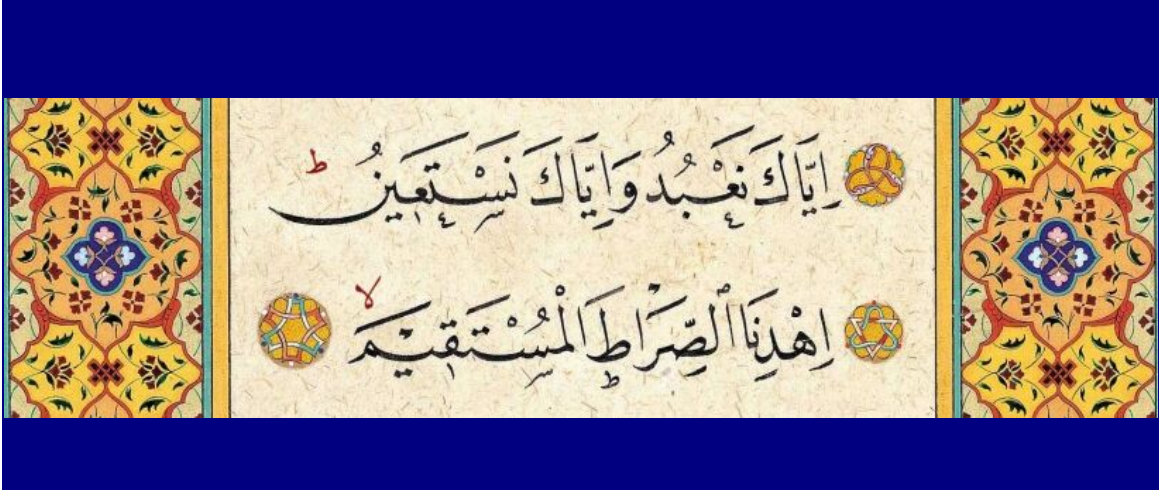 اِيَّاكَ نَعْبُدُ وَاِيَّاكَ نَسْتَعٖينُ ؕ
اِهْدِنَا الصِّرَاطَ الْمُسْتَقٖيمَ ۙ